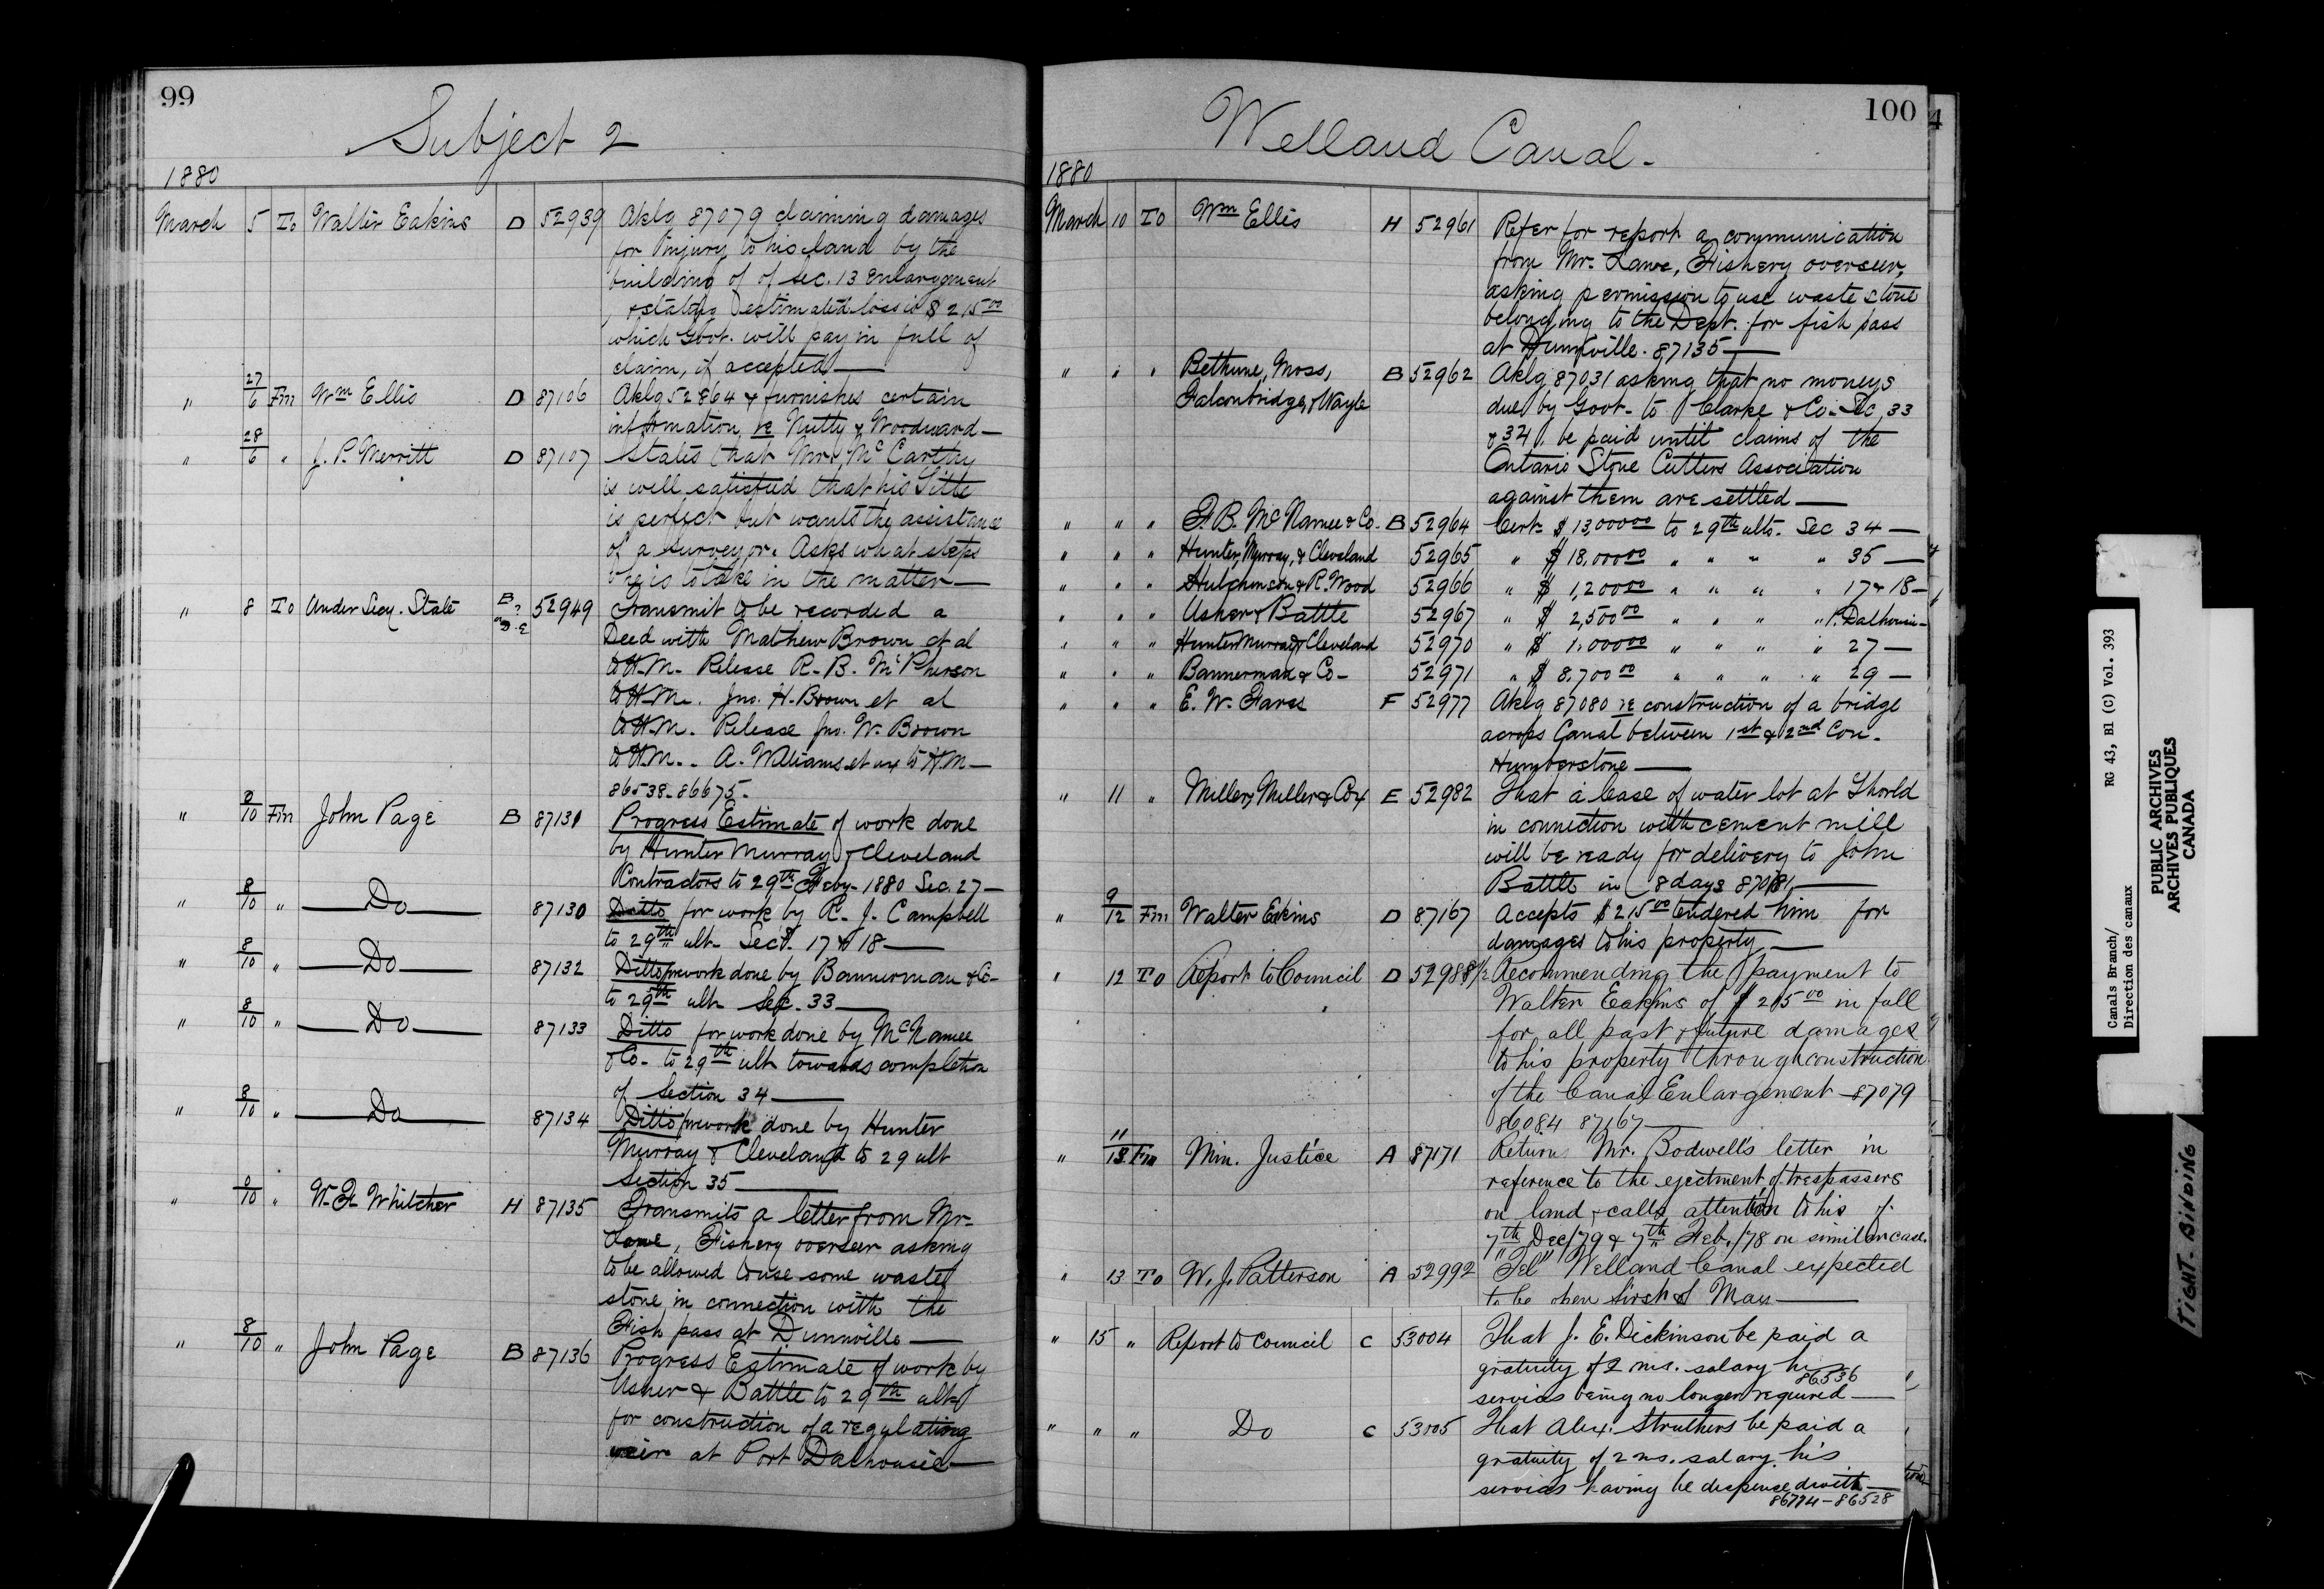 99
Subject 2
1880
March 5 To Walter Eakins D 52939 Aklg 87079 claiming damages
for injury to his land by the
building of of Sec. 13 enlargement
& stating estimated loss is $215.00
which Govt. will pay in full of
claim, if accepted —
" 27/6 Fm Wm Ellis D 87106 Aklg 52864 & furnishes certain
information re Nutty & Woodward —
" 28/6 " J. P. Merritt D 87107 States that Mr. McCarthy
is well satisfied that his Title
is perfect but wants the assistance
of a surveyor. Asks what steps
he is to take in the matter —
" 8 To Under Secy. State B 52949 Transmit to be recorded a
Deed with Mathew Brown et al
to H.M. Release R. B. McPherson
to H.M. Jno. H. Brown et al
to H.M. Release Jno. W. Brown
to H.M. A. Williams et ux to H.M —
86538-86675-
" 8/10 Fm John Page B 87131 Progress Estimate of work done
by Hunter Murray & Cleveland
Contractors to 29th Feby. 1880 Sec. 27 —
" 8/10 " Do 87130 Ditto for work by R. J. Campbell
to 29th ult. Secs. 17 & 18 —
" 8/10 " Do 87132 Ditto for work done by Bannerman & Co
to 29th ult. Sec. 33 —
" 8/10 " Do 87133 Ditto for work done by McNamee
& Co. to 29th ult towards completion
of Section 34 —
" 8/10 " Do 87134 Ditto for work done by Hunter
Murray & Cleveland to 29 ult
Section 35 —
" 9/10 " W. F. Whitcher H 87135 Transmits a letter from Mr.
Lawe, Fishery overseer asking
to be allowed to use some waste
stone in connection with the
Fish pass at Dunnville —
" 8/10 " John Page B 87136 Progress Estimate of work by
Usher & Battle to 29th ult
for construction of a regulating
weir at Port Dalhousie —
100
Welland Canal.
1880
March 10 To Wm Ellis H 52961 Refer for report a communication
from Mr. Lawe, Fishery overseer,
asking permission to use waste stone
belonging to the Dept. for fish pass
at Dunnville. 87135 —
" " " Bethune, Moss, B 52962 Aklg 87031 asking that no moneys
Falconbridge, & Hoyle due by Govt. to Clarke & Co. Sec 33
& 34. be paid until claims of the
Ontario Stone Cutters Association
against them are settled —
" " " F. B. McNamee & Co. B 52964 Cert. $13,000.00 to 29th ulto. Sec 34 —
" " " Hunter, Murray, & Cleveland 52965 " $18,000.00 " " " " 35 —
" " " Hutchinson & R. Wood 52966 " $1,200.00 " " " " 17 & 18 —
" " " Usher & Battle 52967 " $2,500.00 " " " " P. Dalhousie —
" " " Hunter Murray & Cleveland 52970 " $1,000.00 " " " " 27 —
" " " Bannerman & Co — 52971 " $8,700.00 " " " " 29 —
" " " E. W. Fares F 52977 Aklg 87080 re construction of a bridge
across Canal between 1st & 2nd Con.
Humberstone —
" 11 " Miller, Miller & Cox E 52982 That a lease of water lot at Thorold
in connection with cement mill
will be ready for delivery to John
Battle in 8 days 87081 —
" 9/12 Fm Walter Eakins D 87167 Accepts $215.00 tendered him for
damages to his property —
" 12 To Report to Council D 52988½ Recommending the payment to
Walter Eakins of $215.00 in full
for all past & future damages
to his property through construction
of the Canal Enlargement — 87079
86084 87167 —
" 11/13 Fm Min. Justice A 87171 Return Mr. Bodwell's letter in
reference to the ejectment of trespassers
on land & calls attention to his of
7th Dec/79 & 7th Feb./78 on similar case.
" 13 To W. J. Patterson A 52992 "Tel" Welland Canal expected
to be open first of May —
" 15 " Report to Council C 53004 That J. E. Dickinson be paid a
gratuity of 2 ms. salary his
86536
services being no longer required —
" " " Do C 53005 That Alex. Struthers be paid a
gratuity of 2 ms. salary his
services having be dispensed with —
86774-86528
4
Canals Branch/
Direction des canaux
RG 43, Bl (C) Vol. 393
PUBLIC ARCHIVES
ARCHIVES PUBLIQUES
CANADA
TIGHT BINDING